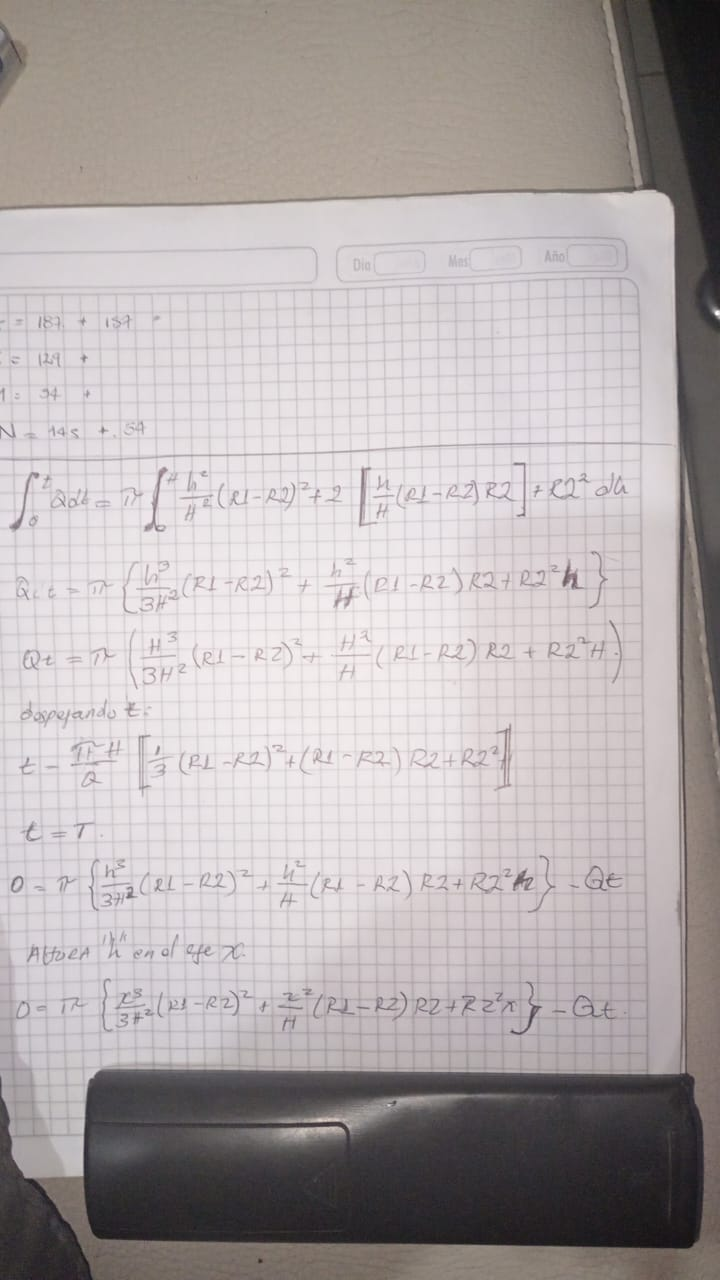 Dia Mes Año
= 187. + 187
= 129 +
= 94 +
N = 145 + 54
∫₀ᵗ Qdt = π ∫₀ᴴ h²/H² (R1-R2)² + 2 [h/H (R1-R2) R2] + R2² dh
Q.t = π {h³/3H² (R1-R2)² + h²/H (R1-R2) R2 + R2² h}
Qt = π (H³/3H² (R1-R2)² + H²/H (R1-R2) R2 + R2² H)
despejando t:
t = πH/Q [1/3 (R1-R2)² + (R1-R2) R2 + R2²]
t = T.
0 = π {h³/3H² (R1-R2)² + h²/H (R1-R2) R2 + R2² h} - Qt
Altura "h" en el eje x.
0 = π {x³/3H² (R1-R2)² + x²/H (R1-R2) R2 + R2² x} - Qt.